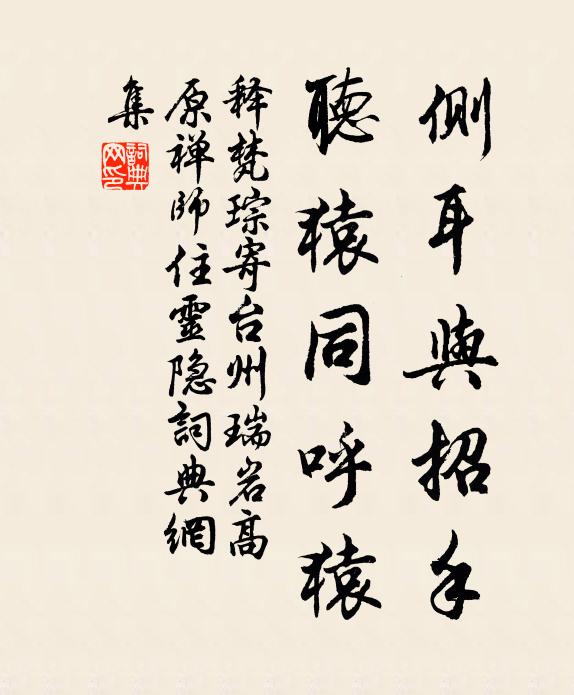 側耳與招手
聽猿同呼猿
释梵琮寄台州瑞岩高
原禅師住靈隐詞典網
集
詞典
网印